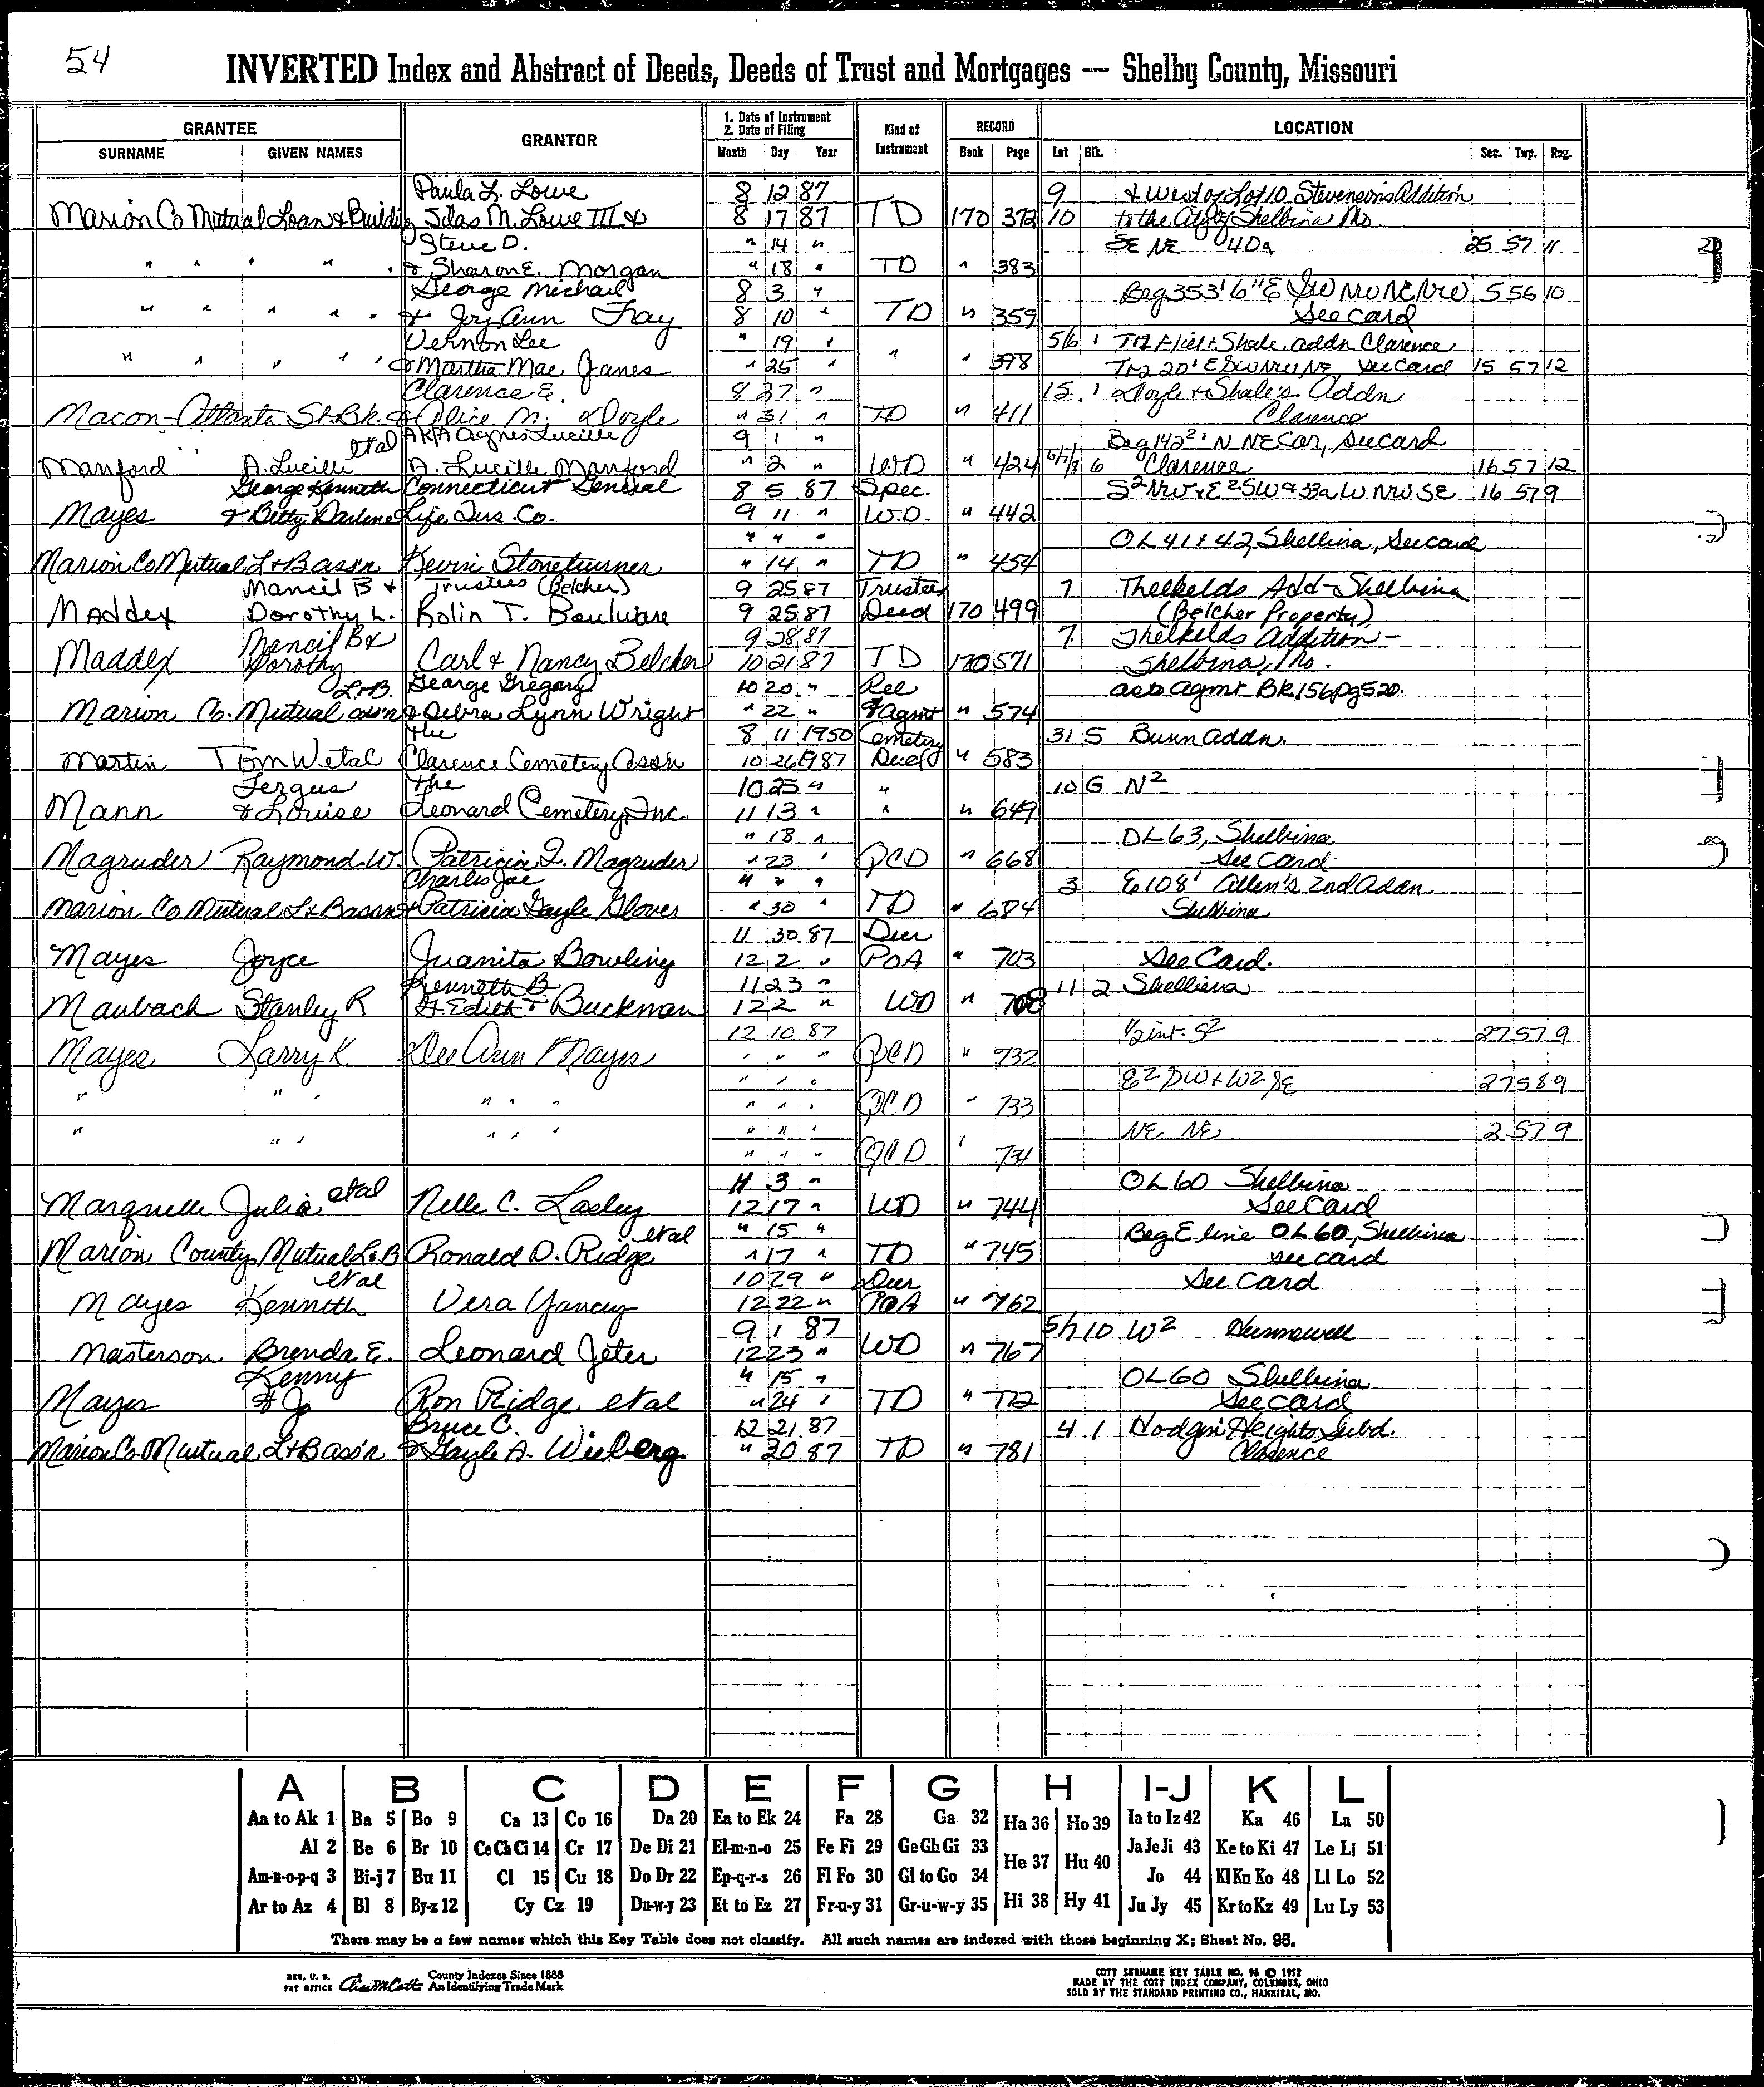 54
INVERTED Index and Abstract of Deeds, Deeds of Trust and Mortgages — Shelby County, Missouri
GRANTEE GRANTOR 1. Date of Instrument 2. Date of Filing Kind of Instrument RECORD LOCATION
SURNAME GIVEN NAMES Month Day Year Book Page Lot Blk. Sec. Twp. Rng.
Paula L. Lowe 8 12 87 9 & West of Lot 10 Stevenson's Addition
Marion Co Mutual Loan & Building Silas M. Lowe III & 8 17 87 TD 170 372 10 to the City of Shelbina Mo.
Steve D. " 14 " SE NE 40a 25 57 11
" " " " " & Sharon E. Morgan " 18 " TD " 383
George Michael 8 3 " Beg 353' 6" E SW NW NE NW 5 56 10
" " " " " & Joy Ann Fray 8 10 " TD " 359 See card
Vernon Lee " 19 " 5/6 1 Tr 1 Field & Shale addn Clarence
" " " " " & Martha Mae Janes " 25 " " " 398 Tr 2 20' E SW NW NE, see card 15 57 12
Clarence E. 8 27 " 15 1 Doyle & Shale's Addn
Macon-Atlanta St. Bk. & Alice M. Doyle " 31 " TD " 411 Clarence
etal AKA Agnes Lucille 9 1 " Beg 142²' N NE Cor, See card
Manford A. Lucille A. Lucille Manford " 2 " WD " 424 6/7/8 6 Clarence 16 57 12
George Kenneth Connecticut General 8 5 87 Spec. S² NW & E² SW & 33a W NW SE 16 57 9
Mayes & Betty Darlene Life Ins. Co. 9 11 " W.D. " 442
" " " OL 41 & 42, Shelbina, See card
Marion Co Mutual L & B ass'n Kevin Stoneturner " 14 " TD " 454
Mancil B & Trustees (Belcher) 9 25 87 Trustees 7 Thelkelds Add - Shelbina
Maddex Dorothy L. Rolin T. Boulware 9 25 87 Deed 170 499 (Belcher Property)
Mancil B & 9 28 87 7 Thelkelds Addition -
Maddex Dorothy Carl & Nancy Belcher 10 21 87 TD 170 571 Shelbina, Mo.
L & B. George Gregory 10 20 " Rel as to Agmt Bk 156 pg 520.
Marion Co. Mutual ass'n & Debra Lynn Wright " 22 " & Agmt " 574
the 8 11 1950 Cemetery 31 5 Bunn Addn.
Martin Tom W etal Clarence Cemetery Ass'n 10 26 1987 Deed " 583
Fergus the 10 25 " " 10 G N²
Mann & Louise Leonard Cemetery, Inc. 11 13 " " " 649
" 18 " OL 63, Shelbina
Magruder Raymond W. Patricia I. Magruder " 23 " QCD " 668 See Card.
Charles Joe " " " 3 E 108' Allen's 2nd Addn.
Marion Co Mutual L & B assn & Patricia Gayle Glover " 30 " TD " 684 Shelbina
11 30 87 Dur
Mayes Joyce Juanita Bowling 12 2 " POA " 703 See Card.
Kenneth B 11 23 " 11 2 Shelbina
Maubach Stanley R & Edith F Buckman 12 2 " WD " 708
12 10 87 ½ int. S² 27 57 9
Mayes Larry K Dee Ann Mayes " " " QCD " 732
" " " E² SW & W² SE 27 58 9
" " " " " " " " " QCD " 733
" " " NE NE 2 57 9
" " " " " " " " " QCD " 734
etal 11 3 " OL 60 Shelbina
Marquette Julia Nelle C. Lasley 12 17 " WD " 744 See Card
etal " 15 " Beg E line OL 60, Shelbina
Marion County Mutual L & B Ronald D. Ridge " 17 " TD " 745 see card
etal 10 29 " Dur See Card
Mayes Kenneth Vera Yancy 12 22 " POA " 762
9 1 87 5/7 10 W² Hunnewell
Masterson Brenda E. Leonard Jeter 12 23 " WD " 767
Kenny " 15 " OL 60 Shelbina
Mayes & Jo Ron Ridge etal " 24 " TD " 772 See card
Bruce C. 12 21 87 4 1 Hodgin Heights Subd.
Marion Co Mutual L & B ass'n & Gayle A. Wieberg " 30 87 TD " 781 Clarence
A B C D E F G H I-J K L
Aa to Ak 1 Ba 5 Bo 9 Ca 13 Co 16 Da 20 Ea to Ek 24 Fa 28 Ga 32 Ha 36 Ho 39 Ia to Iz 42 Ka 46 La 50
Al 2 Be 6 Br 10 Ce Ch Ci 14 Cr 17 De Di 21 El-m-n-o 25 Fe Fi 29 Ge Gh Gi 33 He 37 Hu 40 Ja Je Ji 43 Ke to Ki 47 Le Li 51
Am-n-o-p-q 3 Bi-j 7 Bu 11 Cl 15 Cu 18 Do Dr 22 Ep-q-r-s 26 Fl Fo 30 Gl to Go 34 Jo 44 Kl Kn Ko 48 Ll Lo 52
Ar to Az 4 Bl 8 By-z 12 Cy Cz 19 Du-w-y 23 Et to Ez 27 Fr-u-y 31 Gr-u-w-y 35 Hi 38 Hy 41 Ju Jy 45 Kr to Kz 49 Lu Ly 53
There may be a few names which this Key Table does not classify. All such names are indexed with those beginning X; Sheet No. 95.
REG. U. S. PAT OFFICE County Indexes Since 1888 An Identifying Trade Mark
COTT SURNAME KEY TABLE NO. 96 © 1952
MADE BY THE COTT INDEX COMPANY, COLUMBUS, OHIO
SOLD BY THE STANDARD PRINTING CO., HANNIBAL, MO.